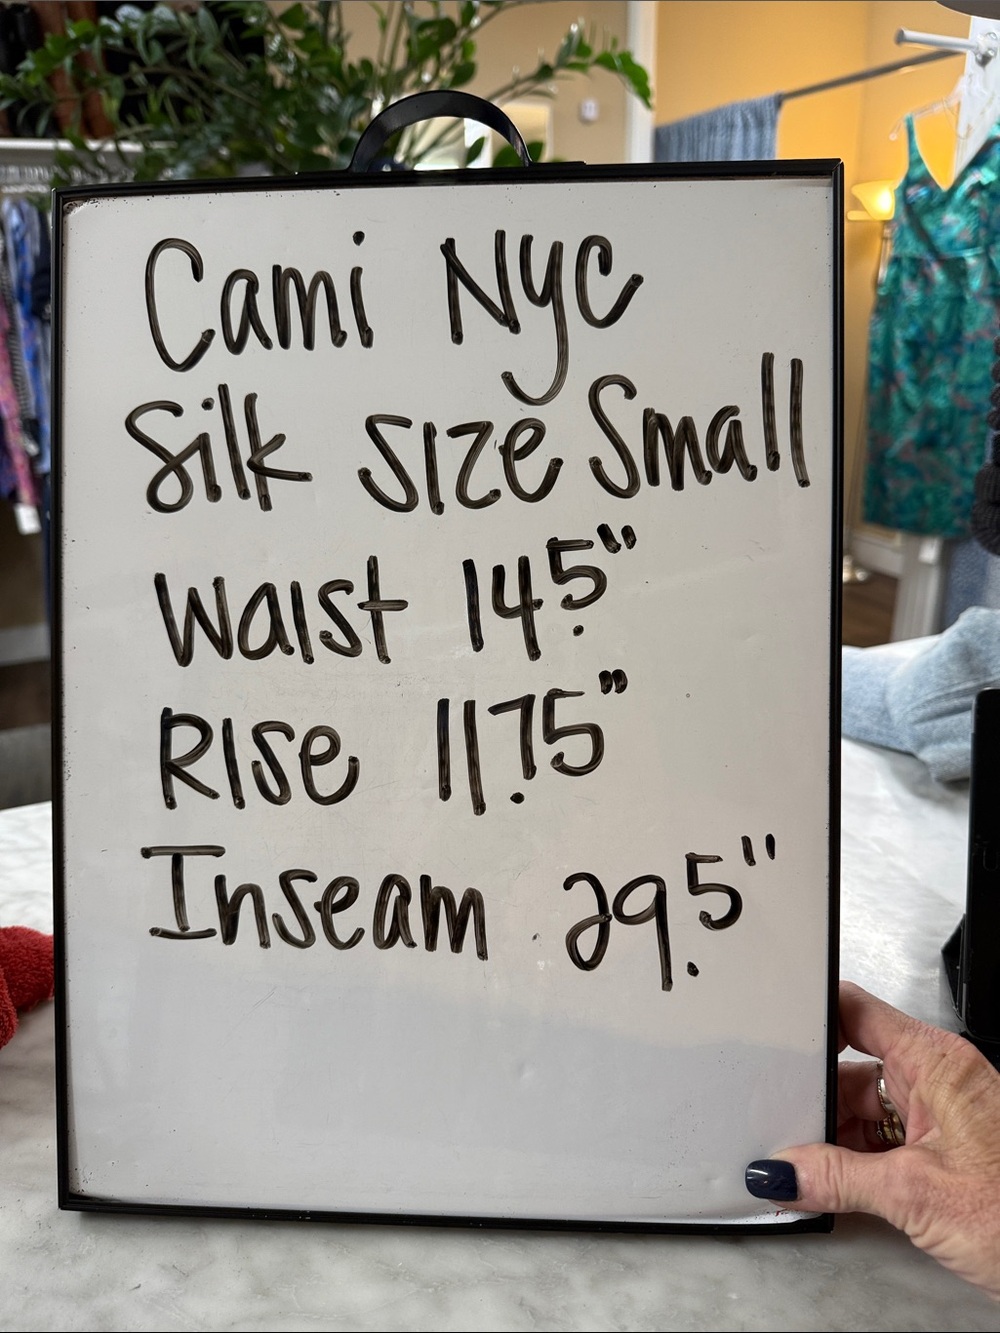 Cami Nyc
Silk Size Small
Waist 14.5"
Rise 11.75"
Inseam 29.5"